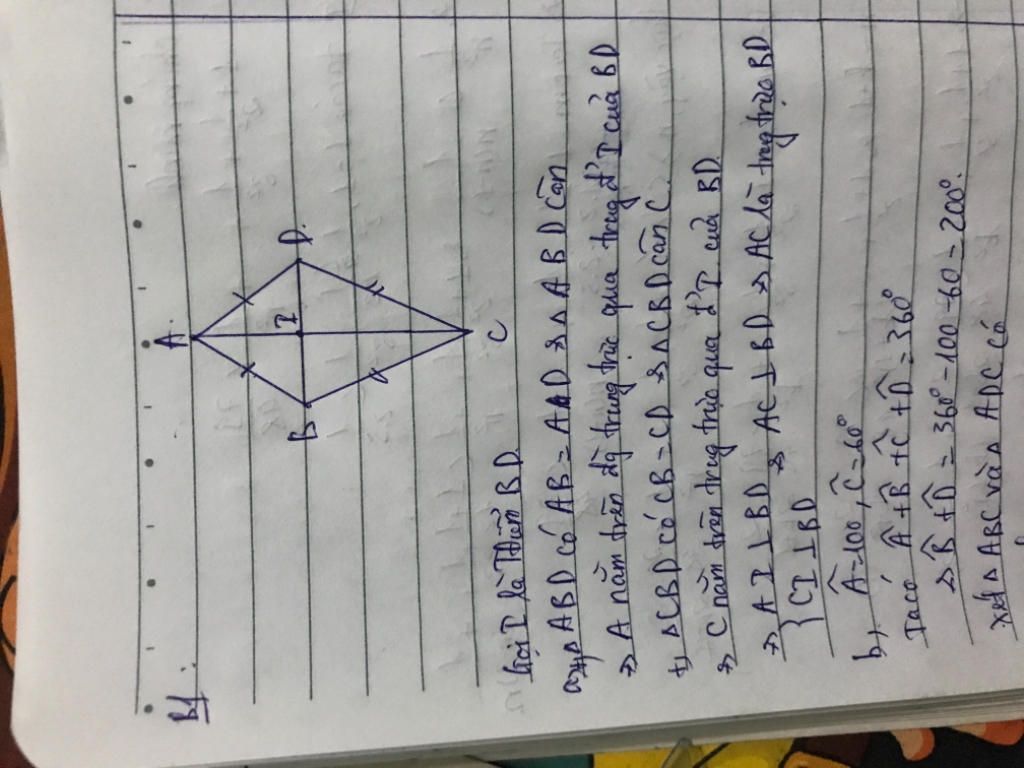 B1.
A.
B
I
D.
C
Gọi I là TĐiểm BD
a, +) ΔABD có AB = AD => ΔABD cân
=> A nằm trên đg trung trực qua trung đ' I của BD
+) ΔCBD có CB = CD => ΔCBD cân C.
=> C nằm trên trung trực qua đ' I của BD
=> { AI ⊥ BD
{ CI ⊥ BD => AC ⊥ BD => AC là trung trực BD
b, Â = 100, Ĉ = 60°
Ta có Â + B̂ + Ĉ + D̂ = 360°
=> B̂ + D̂ = 360° - 100 - 60 = 200°.
Xét Δ ABC và Δ ADC có